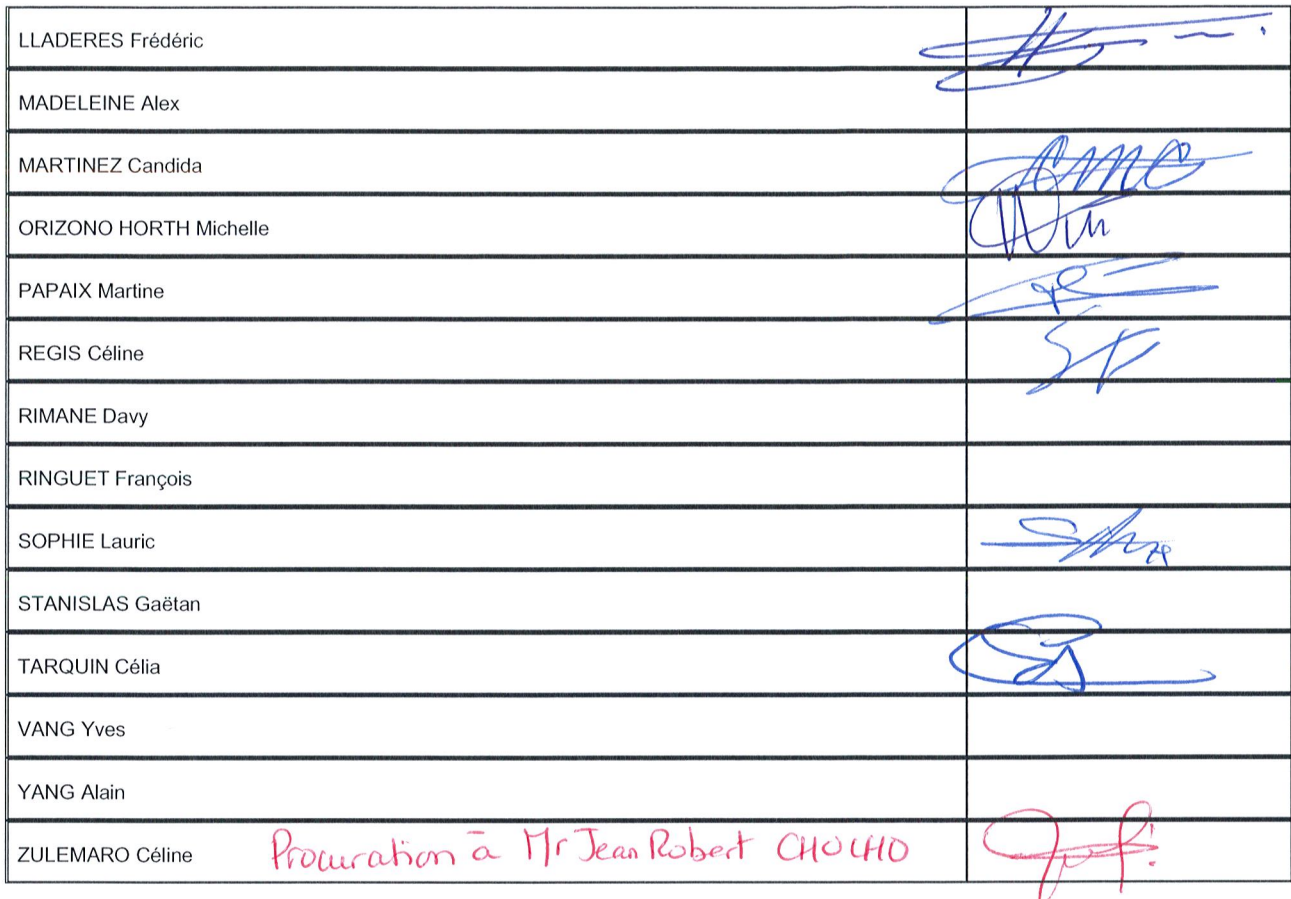 LLADERES Frédéric
MADELEINE Alex
MARTINEZ Candida
ORIZONO HORTH Michelle
PAPAIX Martine
REGIS Céline
RIMANE Davy
RINGUET François
SOPHIE Lauric
STANISLAS Gaëtan
TARQUIN Célia
VANG Yves
YANG Alain
ZULEMARO Céline Procuration à Mr Jean Robert CHOCHO